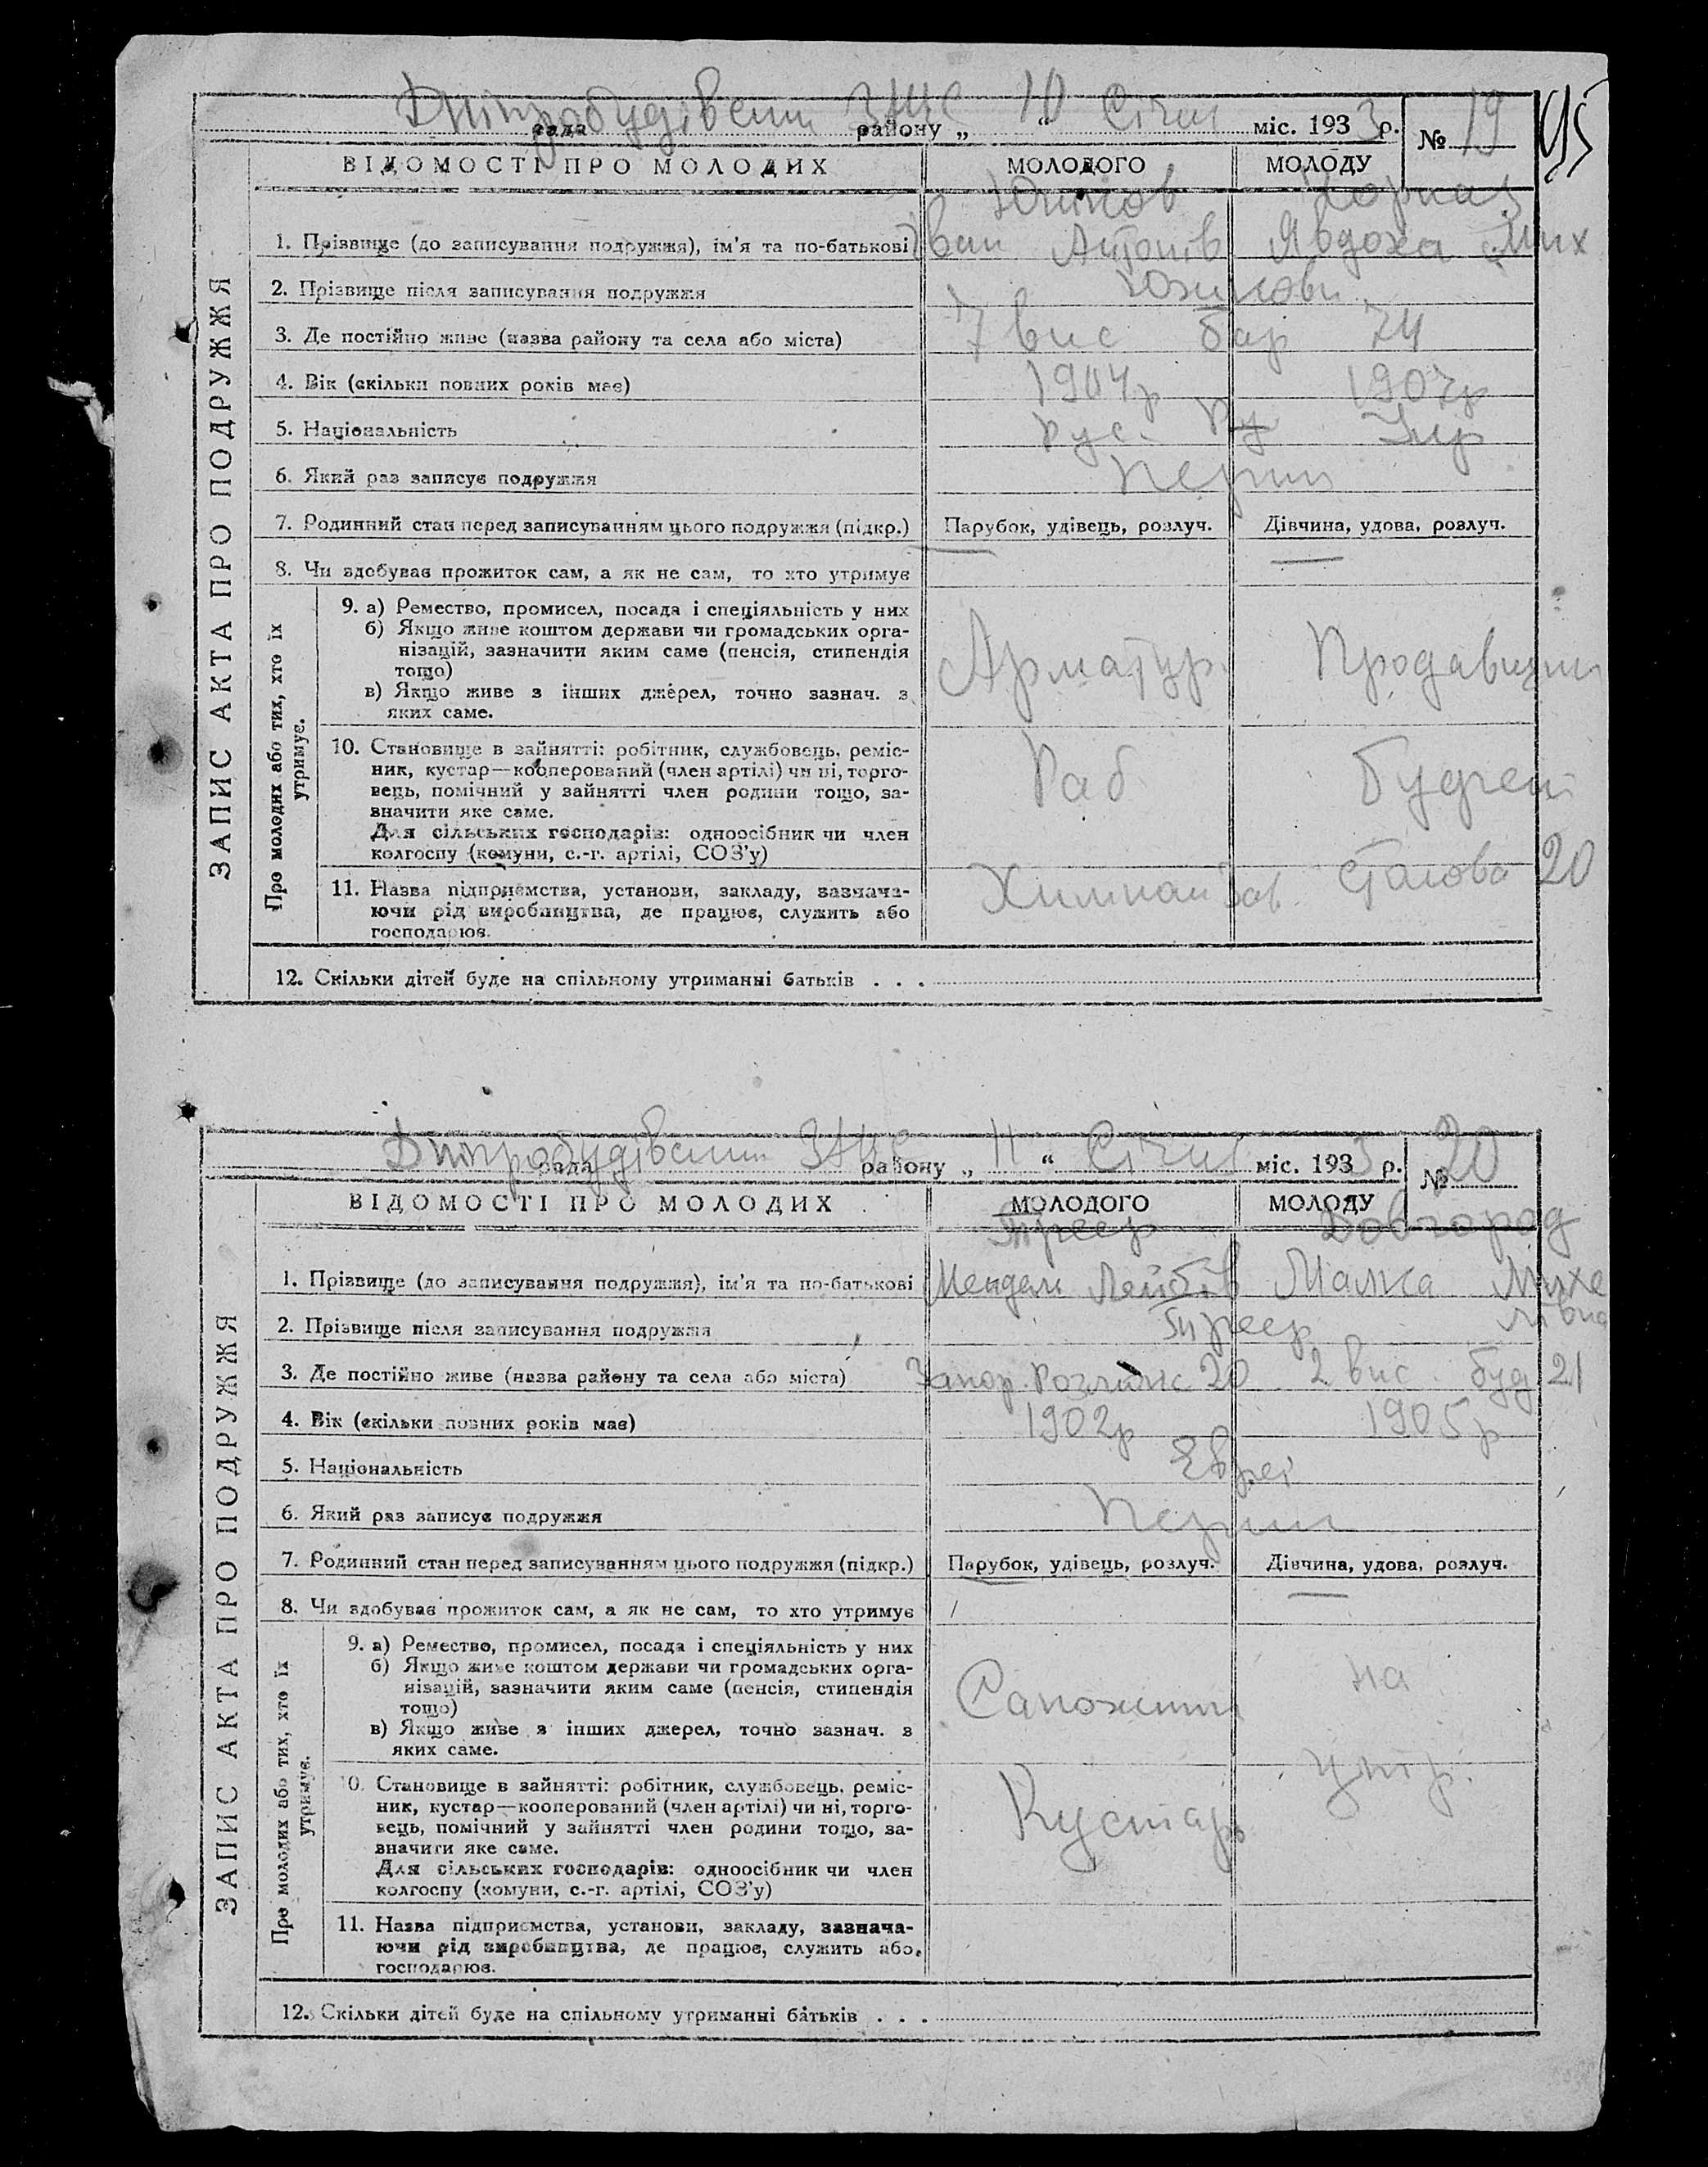 Дніпробудівський ЗАГС 10 Січня
рада району „ “ міс. 1933 р. № 19 95
ВІДОМОСТІ ПРО МОЛОДИХ МОЛОДОГО МОЛОДУ
1. Прізвище (до записування подружжя), ім'я та по-батькові Іван Антонів Явдоха Мих
2. Прізвище після записування подружжя
3. Де постійно живе (назва району та села або міста) 7 вис бар 74
4. Вік (скільки повних років має) 1904р 1907р
5. Національність Рус. Ру Укр
6. Який раз записує подружжя перши
7. Родинний стан перед записуванням цього подружжя (підкр.) Парубок, удівець, розлуч. Дівчина, удова, розлуч.
8. Чи здобуває прожиток сам, а як не сам, то хто утримує
ЗАПИС АКТА ПРО ПОДРУЖЖЯ
Про молодих або тих, хто їх утримує.
9. а) Ремество, промисел, посада і спеціяльність у них
б) Якщо живе коштом держави чи громадських орга-
нізацій, зазначити яким саме (пенсія, стипендія
тощо)
в) Якщо живе з інших джерел, точно зазнач. з
яких саме.
Арматур. Продавщиця
10. Становище в зайнятті: робітник, службовець, реміс-
ник, кустар—кооперований (член артілі) чи ні, торго-
вець, помічний у зайнятті член родини тощо, за-
значити яке саме.
Для сільських господарів: одноосібник чи член
колгоспу (комуни, с.-г. артілі, СОЗ'у)
Раб
11. Назва підприємства, установи, закладу, зазнача-
ючи рід виробництва, де працює, служить або
господарює.
Столова 20
12. Скільки дітей буде на спільному утриманні батьків . . .
Дніпробудівський ЗАГС 11 Січня
рада району „ “ міс. 1933 р. № 20
ВІДОМОСТІ ПРО МОЛОДИХ МОЛОДОГО МОЛОДУ
Довгород
1. Прізвище (до записування подружжя), ім'я та по-батькові Мендель Лейбів Малка Михе
лівна
2. Прізвище після записування подружжя
3. Де постійно живе (назва району та села або міста) Запор. 20 2 вис. буд 21
4. Вік (скільки повних років має) 1902р 1905р
5. Національність Евреї
6. Який раз записує подружжя перши
7. Родинний стан перед записуванням цього подружжя (підкр.) Парубок, удівець, розлуч. Дівчина, удова, розлуч.
8. Чи здобуває прожиток сам, а як не сам, то хто утримує
ЗАПИС АКТА ПРО ПОДРУЖЖЯ
Про молодих або тих, хто їх утримує.
9. а) Ремество, промисел, посада і спеціяльність у них
б) Якщо живе коштом держави чи громадських орга-
нізацій, зазначити яким саме (пенсія, стипендія
тощо)
в) Якщо живе з інших джерел, точно зазнач. з
яких саме.
Сапожник на
10. Становище в зайнятті: робітник, службовець, реміс-
ник, кустар—кооперований (член артілі) чи ні, торго-
вець, помічний у зайнятті член родини тощо, за-
значити яке саме.
Для сільських господарів: одноосібник чи член
колгоспу (комуни, с.-г. артілі, СОЗ'у)
Кустарь утр.
11. Назва підприємства, установи, закладу, зазнача-
ючи рід виробництва, де працює, служить або
господарює.
12. Скільки дітей буде на спільному утриманні батьків . . .